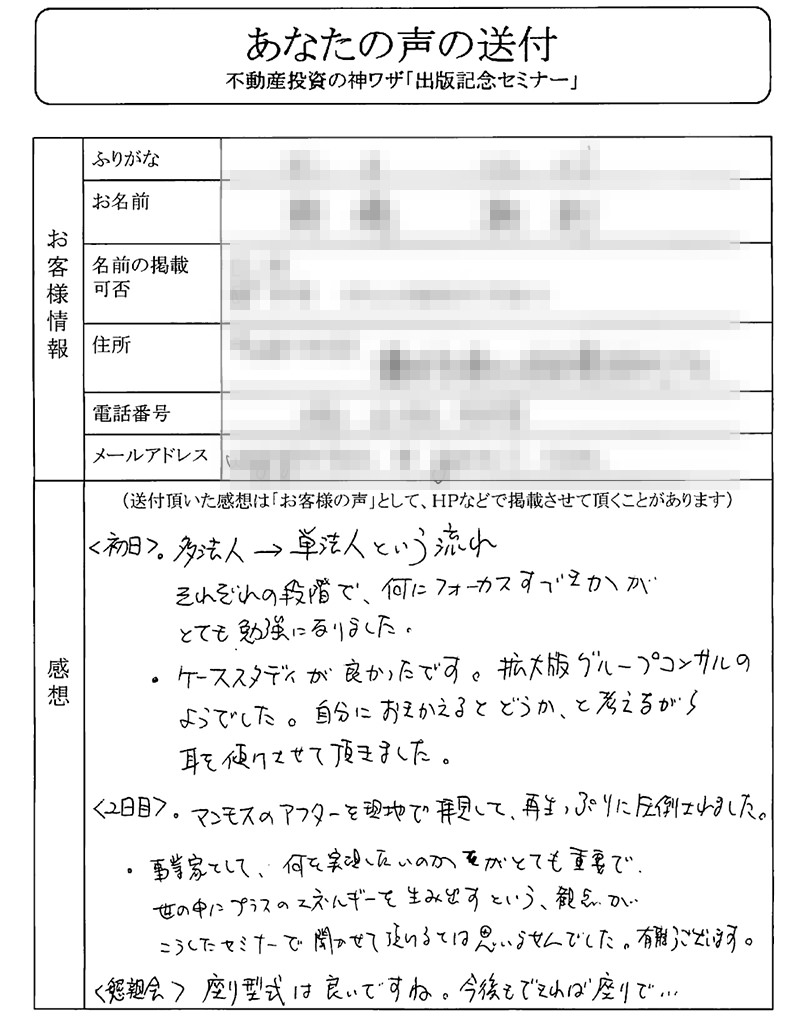 あなたの声の送付
不動産投資の神ワザ「出版記念セミナー」
お客様情報
ふりがな
お名前
名前の掲載
可否
住所
電話番号
メールアドレス
感想
（送付頂いた感想は「お客様の声」として、HPなどで掲載させて頂くことがあります）
<初日>。多法人→単法人という流れ
それぞれの段階で、何にフォーカスすべきかが
とても勉強になりました。
・ケーススタディが良かったです。拡大版グループコンサルの
ようでした。自分におきかえるとどうか、と考えながら
耳を傾けさせて頂きました。
<2日目>。マンモスのアフターを現地で拝見して、再生っぷりに圧倒されました。
・事業家として、何を実現したいのかがとても重要で、
世の中にプラスのエネルギーを生み出すという、観点が
こうしたセミナーで聞かせて頂けるとは思いませんでした。有難うございます。
<懇親会>座り型式は良いですね。今後もできれば座りで…